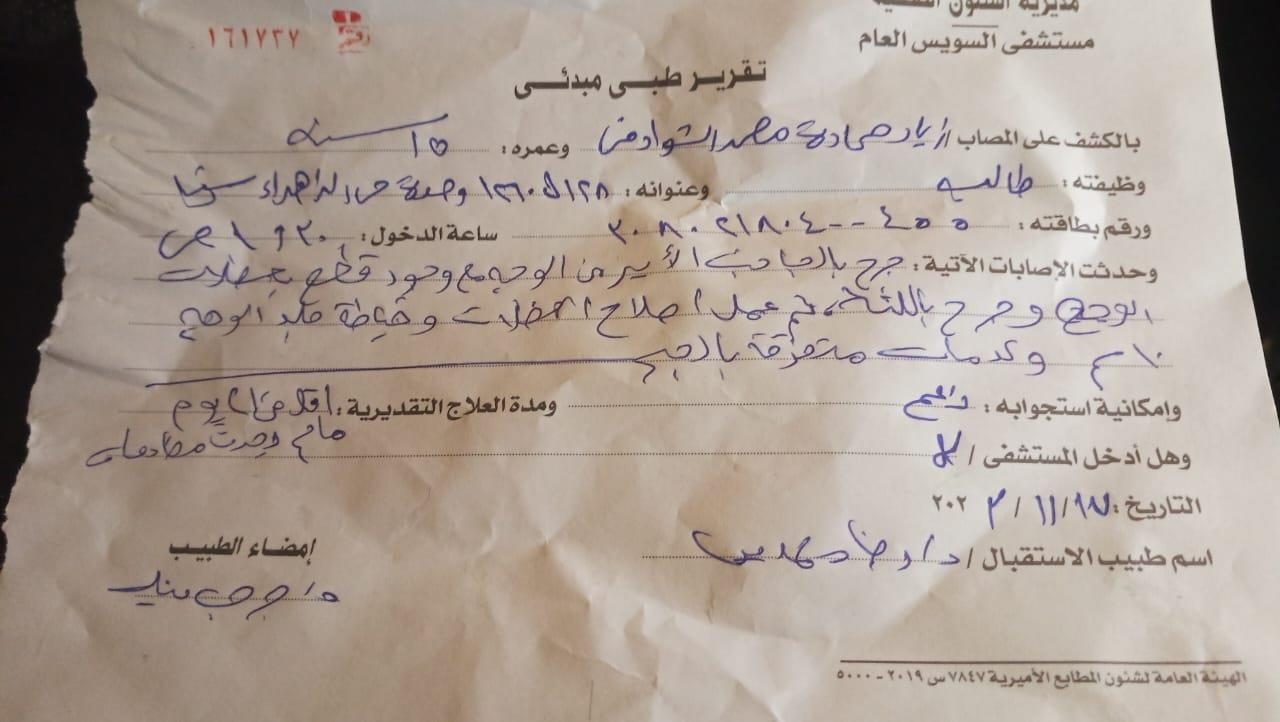 مديرية الشئون الصحية
مستشفى السويس العام
رقم ١٦١٧٣٧
تقرير طبى مبدئى
بالكشف على المصاب / زياد حمادة محمد الشوادفى وعمره : ١٥ سنة
وظيفته : طالب وعنوانه :
ورقم بطاقته : ساعة الدخول : ص
وحدثت الإصابات الآتية : جرح بالجانب الأيسر من الوجه مع وجود قطع بعضلات
الوجه وجرح باللثة، تم عمل اصلاح العضلات وخياطة جلد الوجه
١٠سم وكدمات متفرقة بالجسم
وامكانية استجوابه : نعم ومدة العلاج التقديرية : اقل من ٢١ يوم
مالم يحدث مضاعفات
وهل أدخل المستشفى / لا
التاريخ : / ١١ / ٢٠٢٣
اسم طبيب الاستقبال / د /
إمضاء الطبيب
الهيئة العامة لشئون المطابع الأميرية ٧٨٤٧ س ٢٠١٩ - ٥٠٠٠